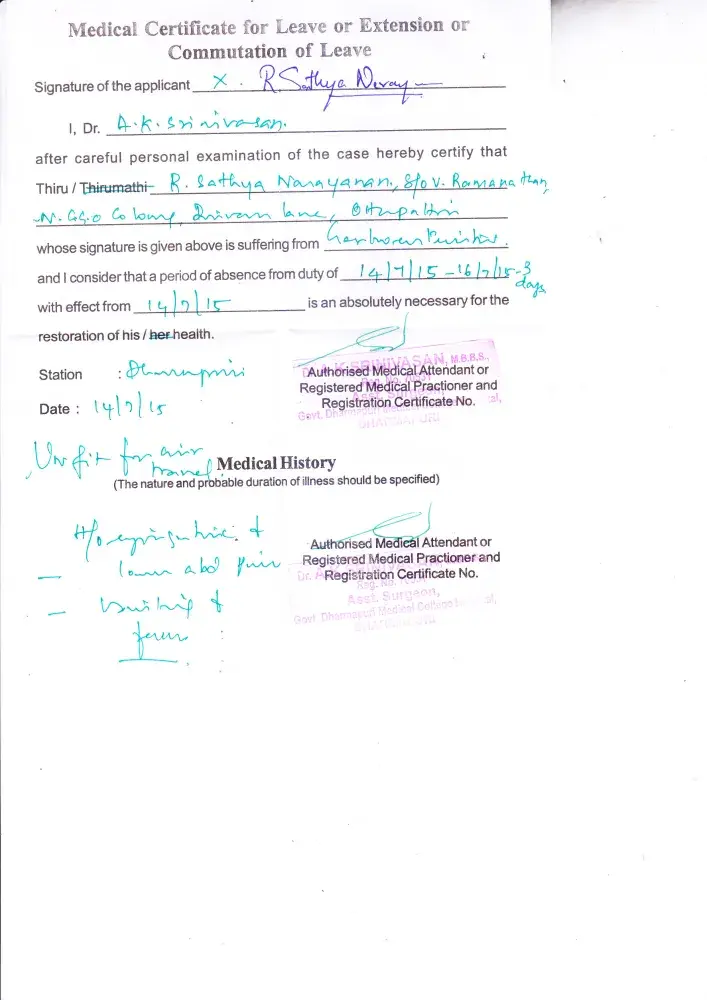 Medical Certificate for Leave or Extension or
Commutation of Leave
Signature of the applicant X. R. Sathya Naray
I, Dr. A.K. Srinivasan.
after careful personal examination of the case hereby certify that
Thiru / Thirumathi R. Sathya Narayanan, S/o V. Ramanathan,
N.G.G.O Colony, lane,
whose signature is given above is suffering from
and I consider that a period of absence from duty of 14/7/15 - 16/7/15 - 3 days
with effect from 14/7/15 is an absolutely necessary for the
restoration of his / her health.
Station : Dharmapuri
Date : 14/7/15
A.K. SRINIVASAN, M.B.B.S.,
Authorised Medical Attendant or
Registered Medical Practioner and
Registration Certificate No.
Asst. Surgeon,
Unfit for air travel
Medical History
(The nature and probable duration of illness should be specified)
H/o epigastric &
- lower abd pain
- Vomiting &
fever
Authorised Medical Attendant or
Registered Medical Practioner and
Registration Certificate No.
Reg. No.
Asst. Surgeon,
Govt. Dharmapuri Medical College